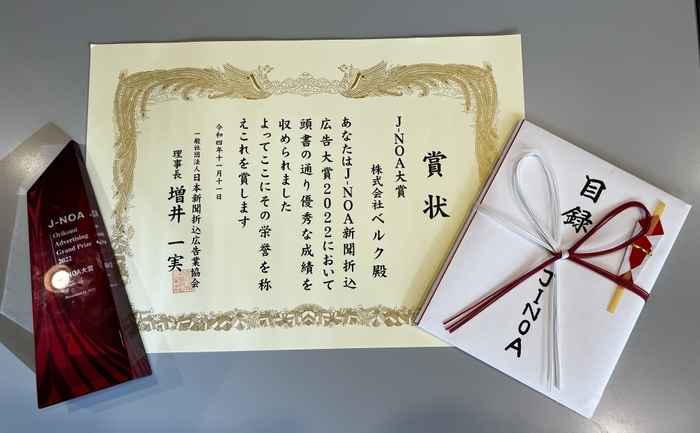 賞状
J-NOA大賞
株式会社ベルク殿
あなたはJ-NOA新聞折込
広告大賞2022において
頭書の通り優秀な成績を
収められました
よってここにその栄誉を称
えこれを賞します
令和四年十一月十一日
一般社団法人日本新聞折込広告業協会
理事長 増井一実
目録
JNOA
J-NOA
Orikomi
Advertising
Grand Prize
2022
NOA大賞